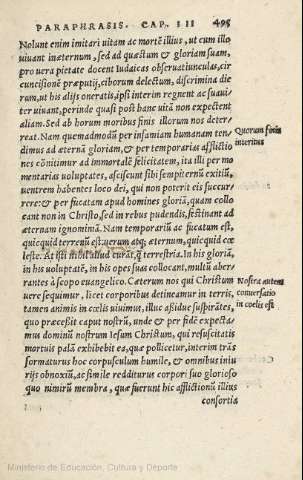 PARAPHRASIS. CAP. III 495
Nolunt enim imitari uitam ac mortẽ illius, ut cum illo
uiuant inæternum, sed ad quæstum & gloriam suam,
pro uera pietate docent Iudaicas obseruatiunculas, cir
cuncisionẽ præputij, ciborum delectum, discrimina die
rum, ut his alijs oneratis, ipsi interim regnent ac suaui
ter uiuant, perinde quasi post hanc uitã non expectent
aliam. Sed ab horum moribus finis illorum nos deter-
reat. Nam quemadmodũ per infamiam humanam ten
dimus ad æternã gloriam, & per temporarias afflictio
nes cõnitimur ad immortalẽ felicitatem, ita illi per mo
mentarias uoluptates, asciscunt sibi sempiternũ exitiũ,
uentrem habentes loco dei, qui non poterit eis succur
rere: & per fucatam apud homines gloriã, quam collo
cant non in Christo, sed in rebus pudendis, festinant ad
æternam ignominiã. Nam temporariũ ac fucatum est,
quicquid terrenũ est: uerum atq; æternum, quicquid cœ
leste. At isti nihil aliud curãt, q̃ terrestria. In his gloriã,
in his uoluptatẽ, in his opes suas collocant, multũ aber
rantes à scopo euangelico. Cæterum nos qui Christum
uere sequimur, licet corporibus detineamur in terris,
tamen animis in cœlis uiuimus, illuc assidue suspirãtes,
quo præcessit caput nostrũ, unde & per fidẽ expecta-
mus dominũ nostrum Iesum Christum, qui resuscitatis
mortuis palã exhibebit ea, quæ pollicetur, interim trãs
formaturus hoc corpusculum humile, & omnibus iniu
rijs obnoxiũ, ac simile redditurus corpori suo glorioso
quo nimirũ membra, quæ fuerunt hic afflictionũ illius
consortia
Quorum finis
interitus
Nostra autem
conuersatio
in cœlis est
Ministerio de Educación, Cultura y Deporte